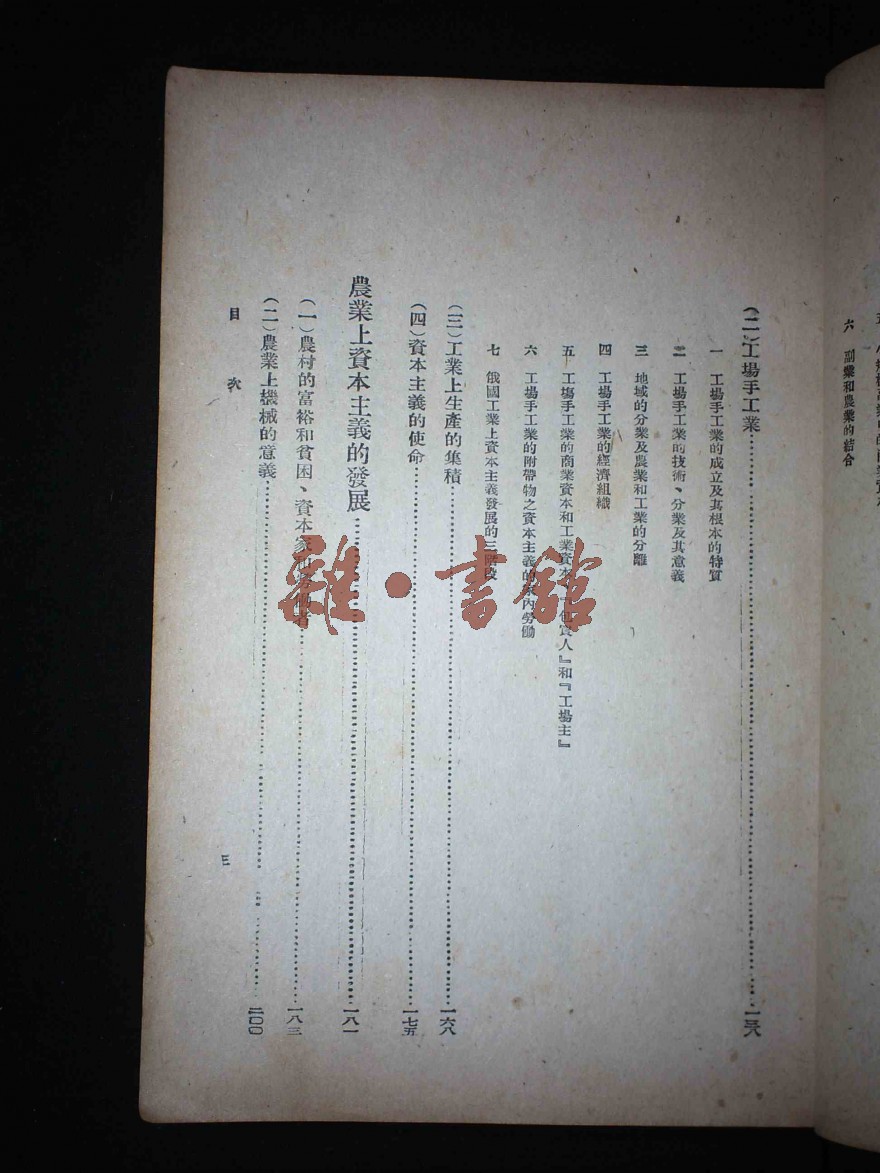 六　副業和農業的結合
(二)工場手工業……一三八
一　工場手工業的成立及其根本的特質
二　工場手工業的技術、分業及其意義
三　地域的分業及農業和工業的分離
四　工場手工業的經濟組織
五　工場手工業的商業資本和工業資本『包買人』和『工場主』
六　工場手工業的附帶物之資本主義的家內勞働
七　俄國工業上資本主義發展的三階段
(三)工業上生產的集積……一六八
(四)資本主義的使命……一七五
農業上資本主義的發展……一八一
(一)農村的富裕和貧困、資本家和勞働者……一八三
(二)農業上機械的意義……二〇〇
目次
三
雜·書館